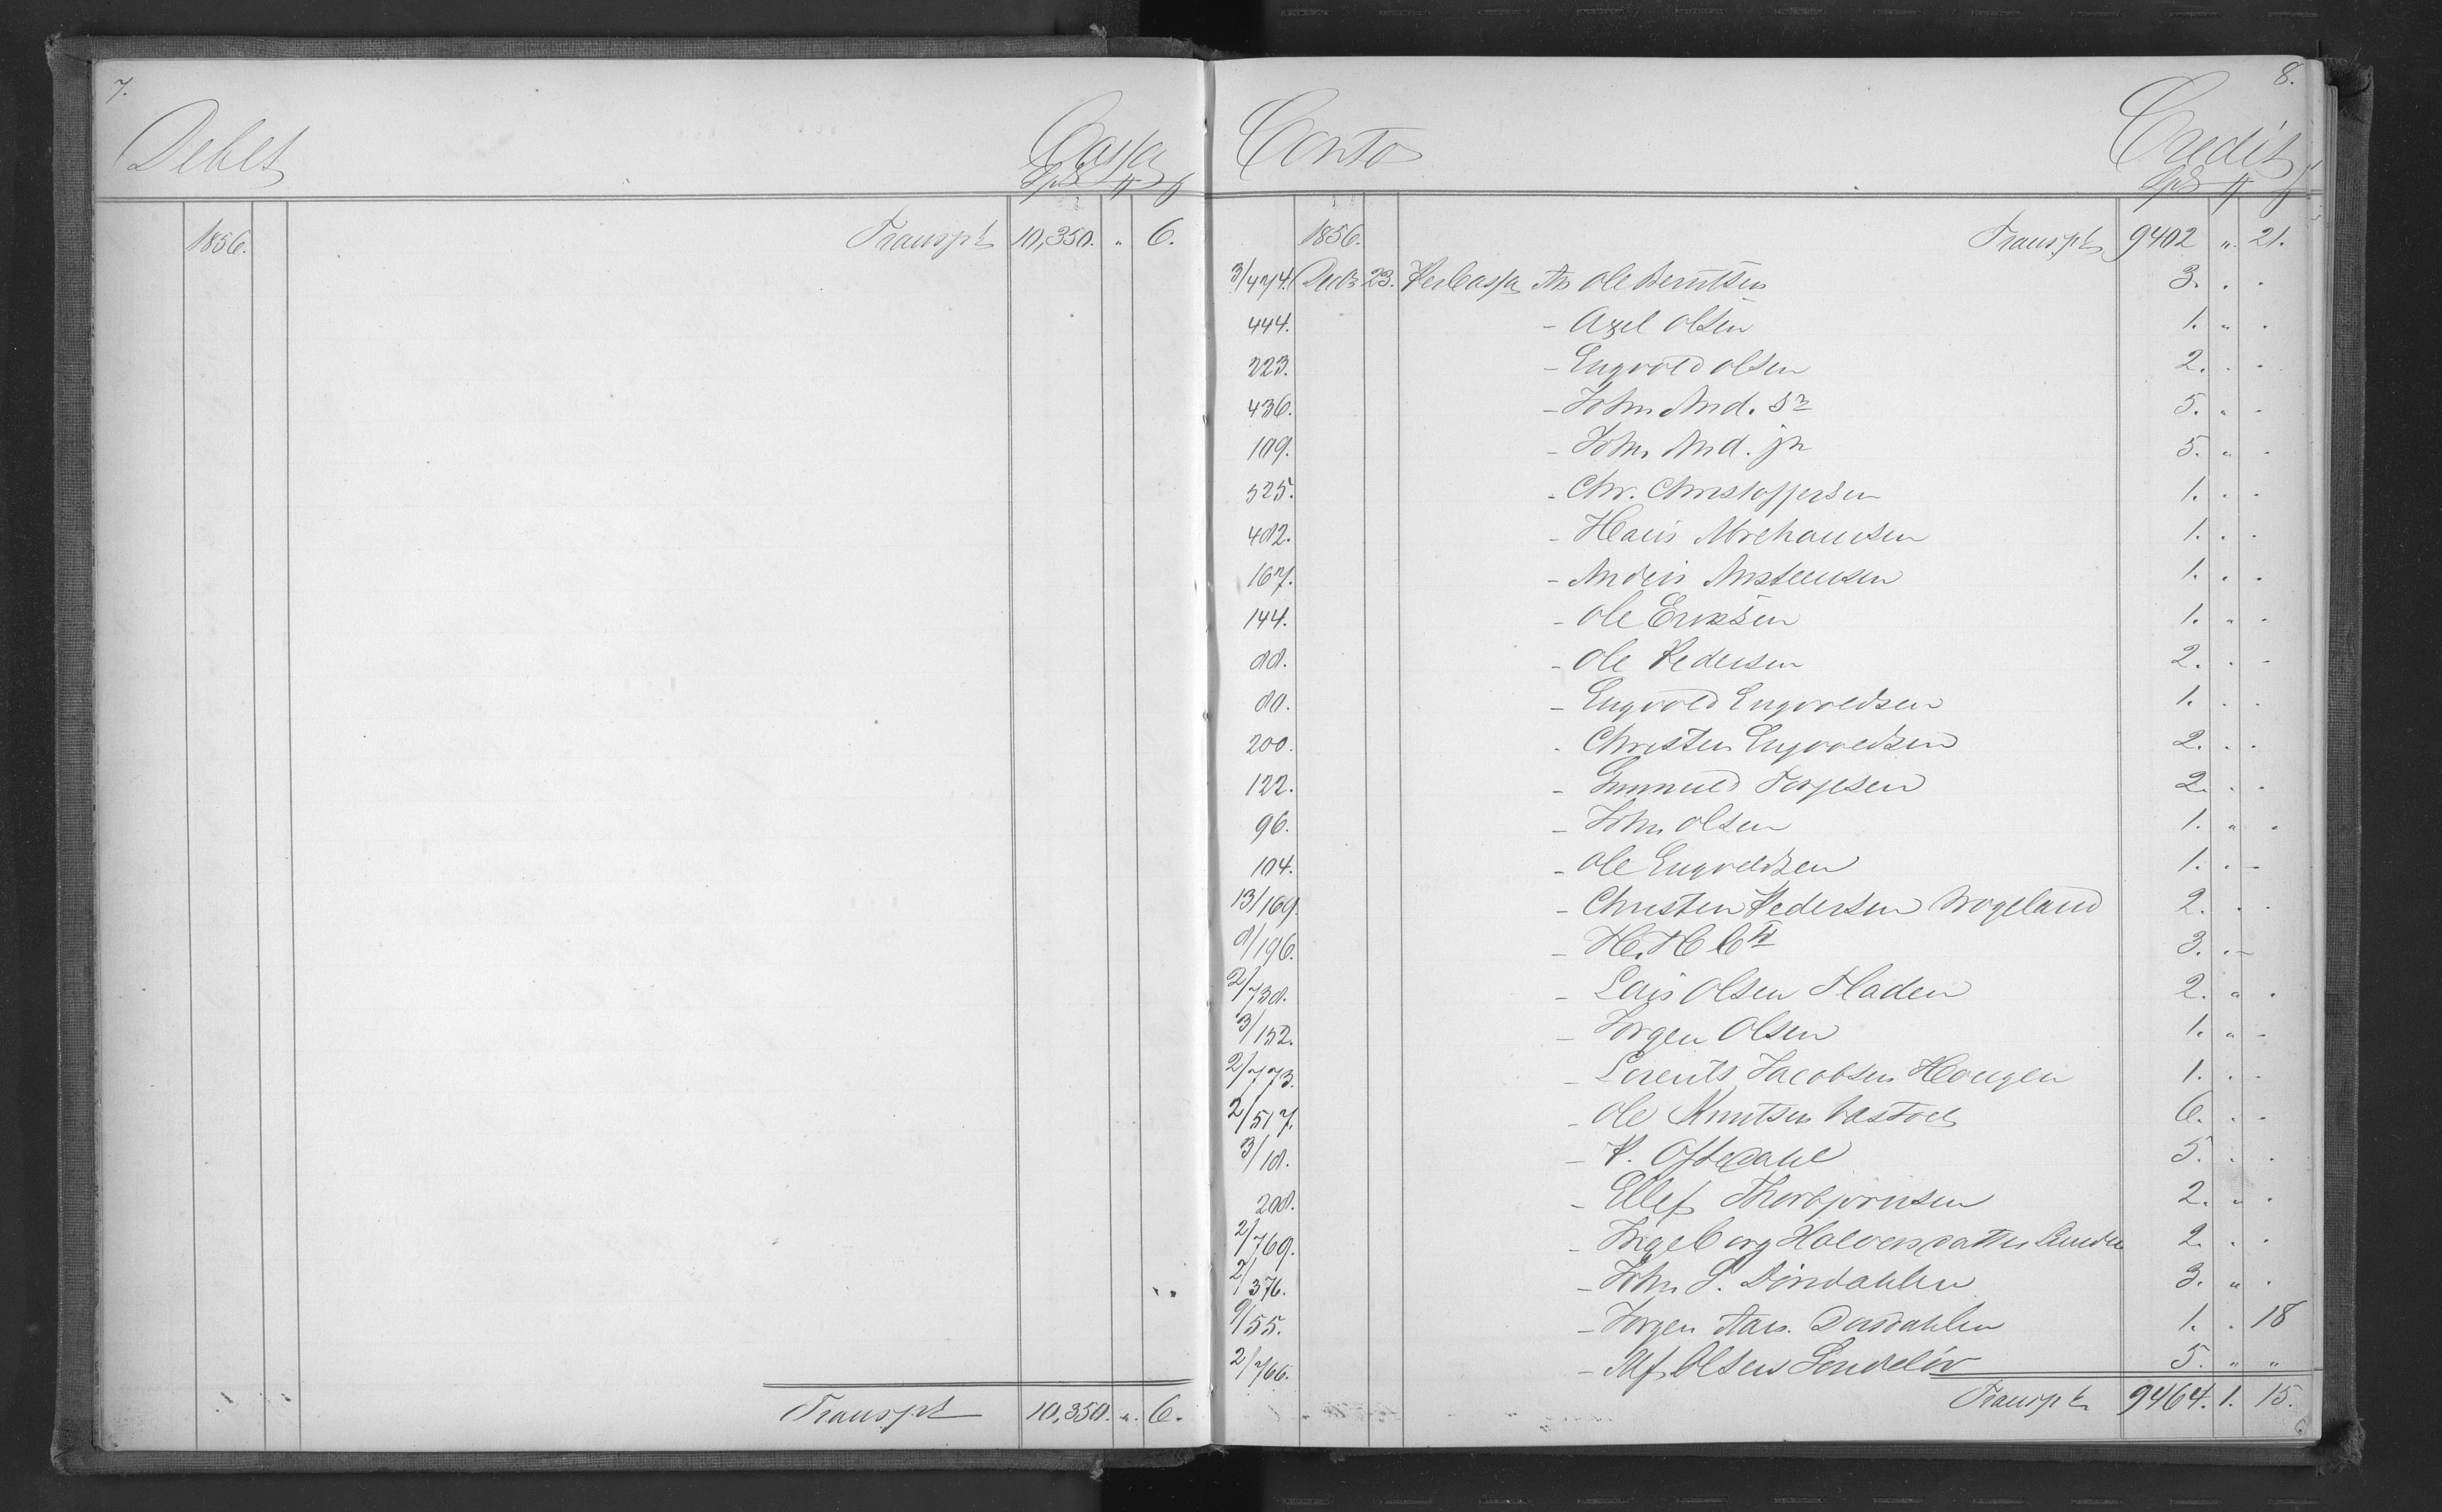 7.
Debet Cassa
Spd
1856. Transpt 10,350. " 6.
Transpt 10,350. " 6.
8.
Conto Credit
Spd
1856. Transpt 9402 " 21.
3/474. Decbr 23. Per Cassa An Ole Berntsen 3. " "
444. - Axel Olsen 1. " "
223. - Engvold Olsen 2. " "
436. - John And. Sr 5. " "
109. - John And. jr 5. " "
525. - Chr. Christoffersen 1. " "
482. - Hans Abrehamsen 1. " "
167. - Anders Anstensen 1. " "
144. - Ole Eriksen 1. " "
88. - Ole Pedersen 2. " "
80. - Engvold Engvoldsen 1. " "
200. - Christen Engvoldsen 2. " "
122. - Gunnuld Torjesen 2. " "
96. - John Olsen 1. " "
104. - Ole Engvoldsen 1. " -
13/169. - Christen Pedersen Wogeland 2. " "
8/196. - H. H. 3. " -
2/738. - Lars Olsen Fladen 2. " "
3/152. - Jørgen Olsen 1. " "
2/773. - Lorents Jacobsen Hougen 1. " "
2/517. - Ole Knutsen 6. " "
3/18. - P. Oftedahl 5. " "
208. - Ellef Thorbjørnsen 2. " "
2/769. - Ingeborg Halvorsdatter 2. " "
2/376. - John S. Dørdahlen 3. " "
9/55. - Jørgen Aars. Dørdahlen 1. " 18
2/766. - Alf Olsen Søndeløv 5. " "
Transpt 9464. 1. 15.